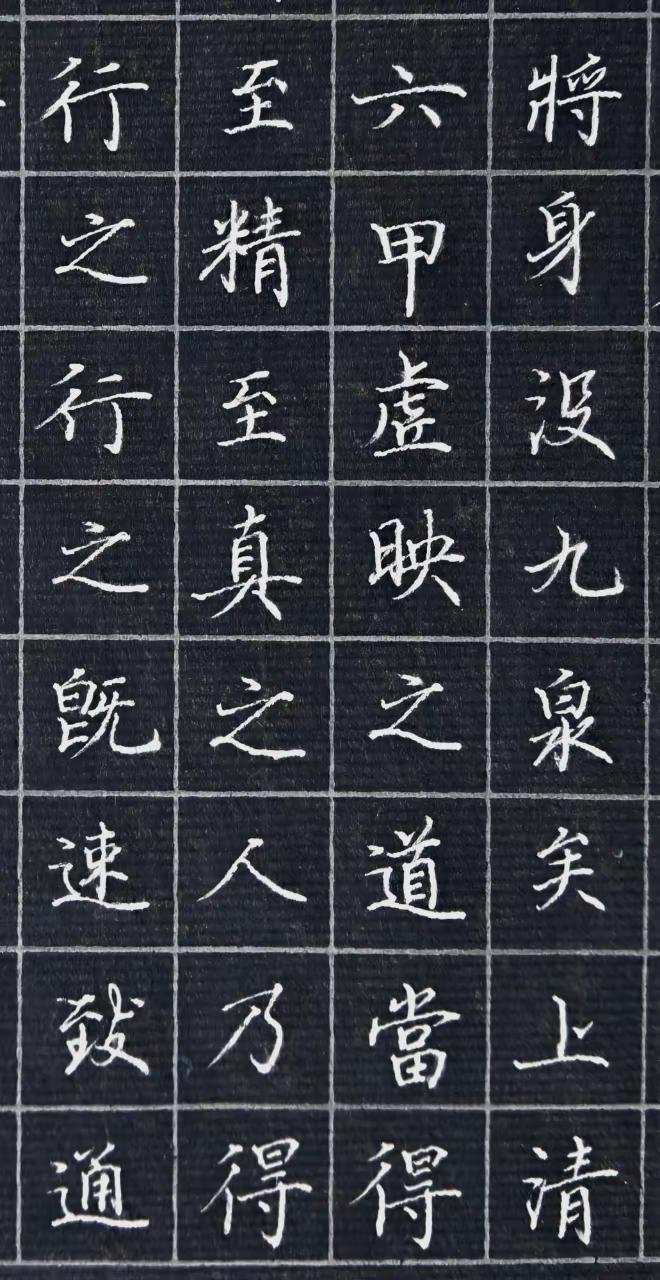 將身没九泉矣上清
六甲虛映之道當得
至精至真之人乃得
行之行之既速致通